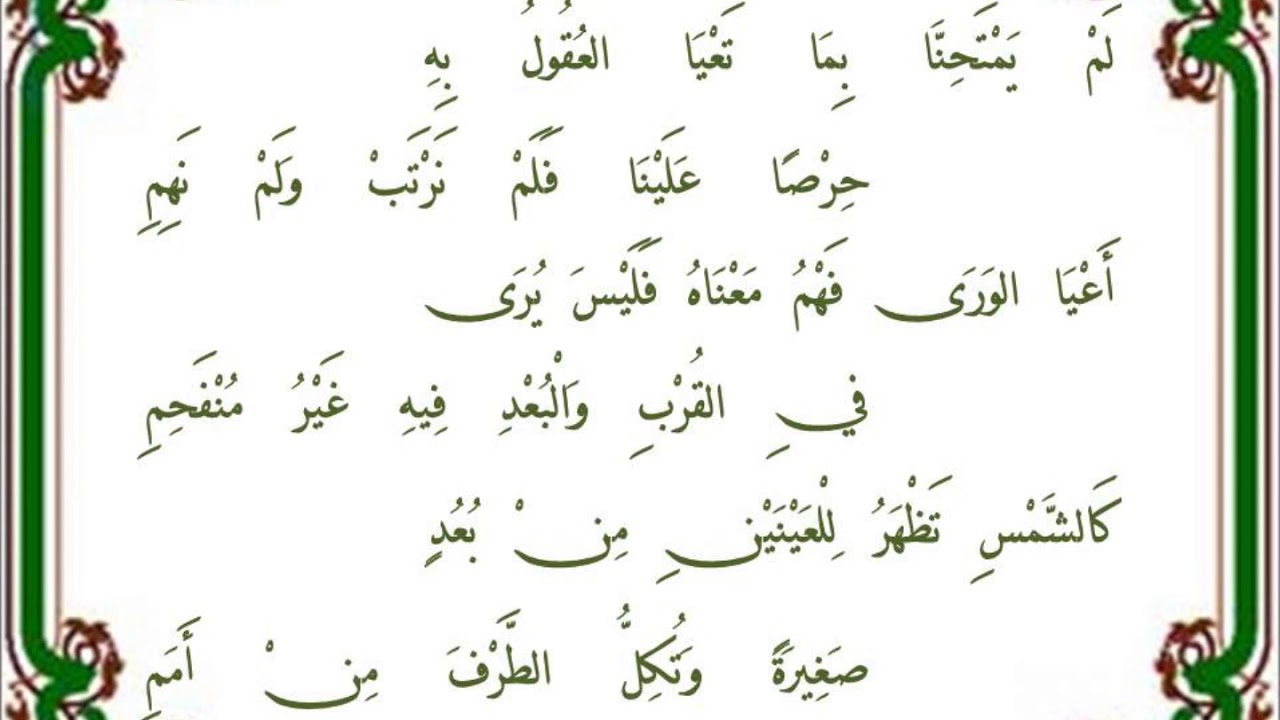 لَمْ يَمْتَحِنَّا بِمَا تَعْيَا العُقُولُ بِهِ
حِرْصًا عَلَيْنَا فَلَمْ نَرْتَبْ وَلَمْ نَهِمِ
أَعْيَا الوَرَى فَهْمُ مَعْنَاهُ فَلَيْسَ يُرَى
فِي القُرْبِ وَالْبُعْدِ فِيهِ غَيْرُ مُنْفَحِمِ
كَالشَّمْسِ تَظْهَرُ لِلْعَيْنَيْنِ مِنْ بُعُدٍ
صَغِيرَةً وَتُكِلُّ الطَّرْفَ مِنْ أَمَمِ